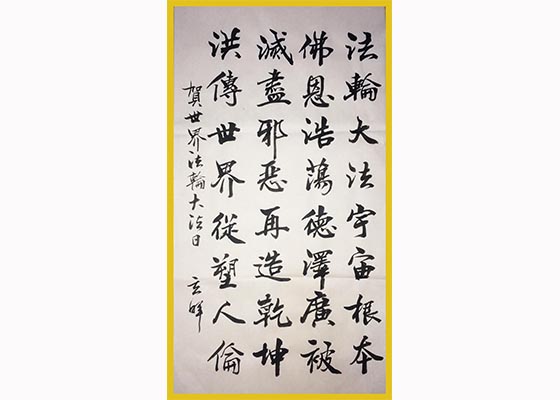 法輪大法宇宙根本
佛恩浩蕩德澤廣被
滅盡邪惡再造乾坤
洪傳世界從塑人倫
賀世界法輪大法日 玄鮮